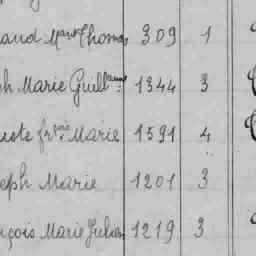 aud Marie Thomas 309 1
ph Marie Guillaume 1344 3
uste frçois Marie 1591 4
seph Marie 1201 3
nçois Marie Julien 1219 3